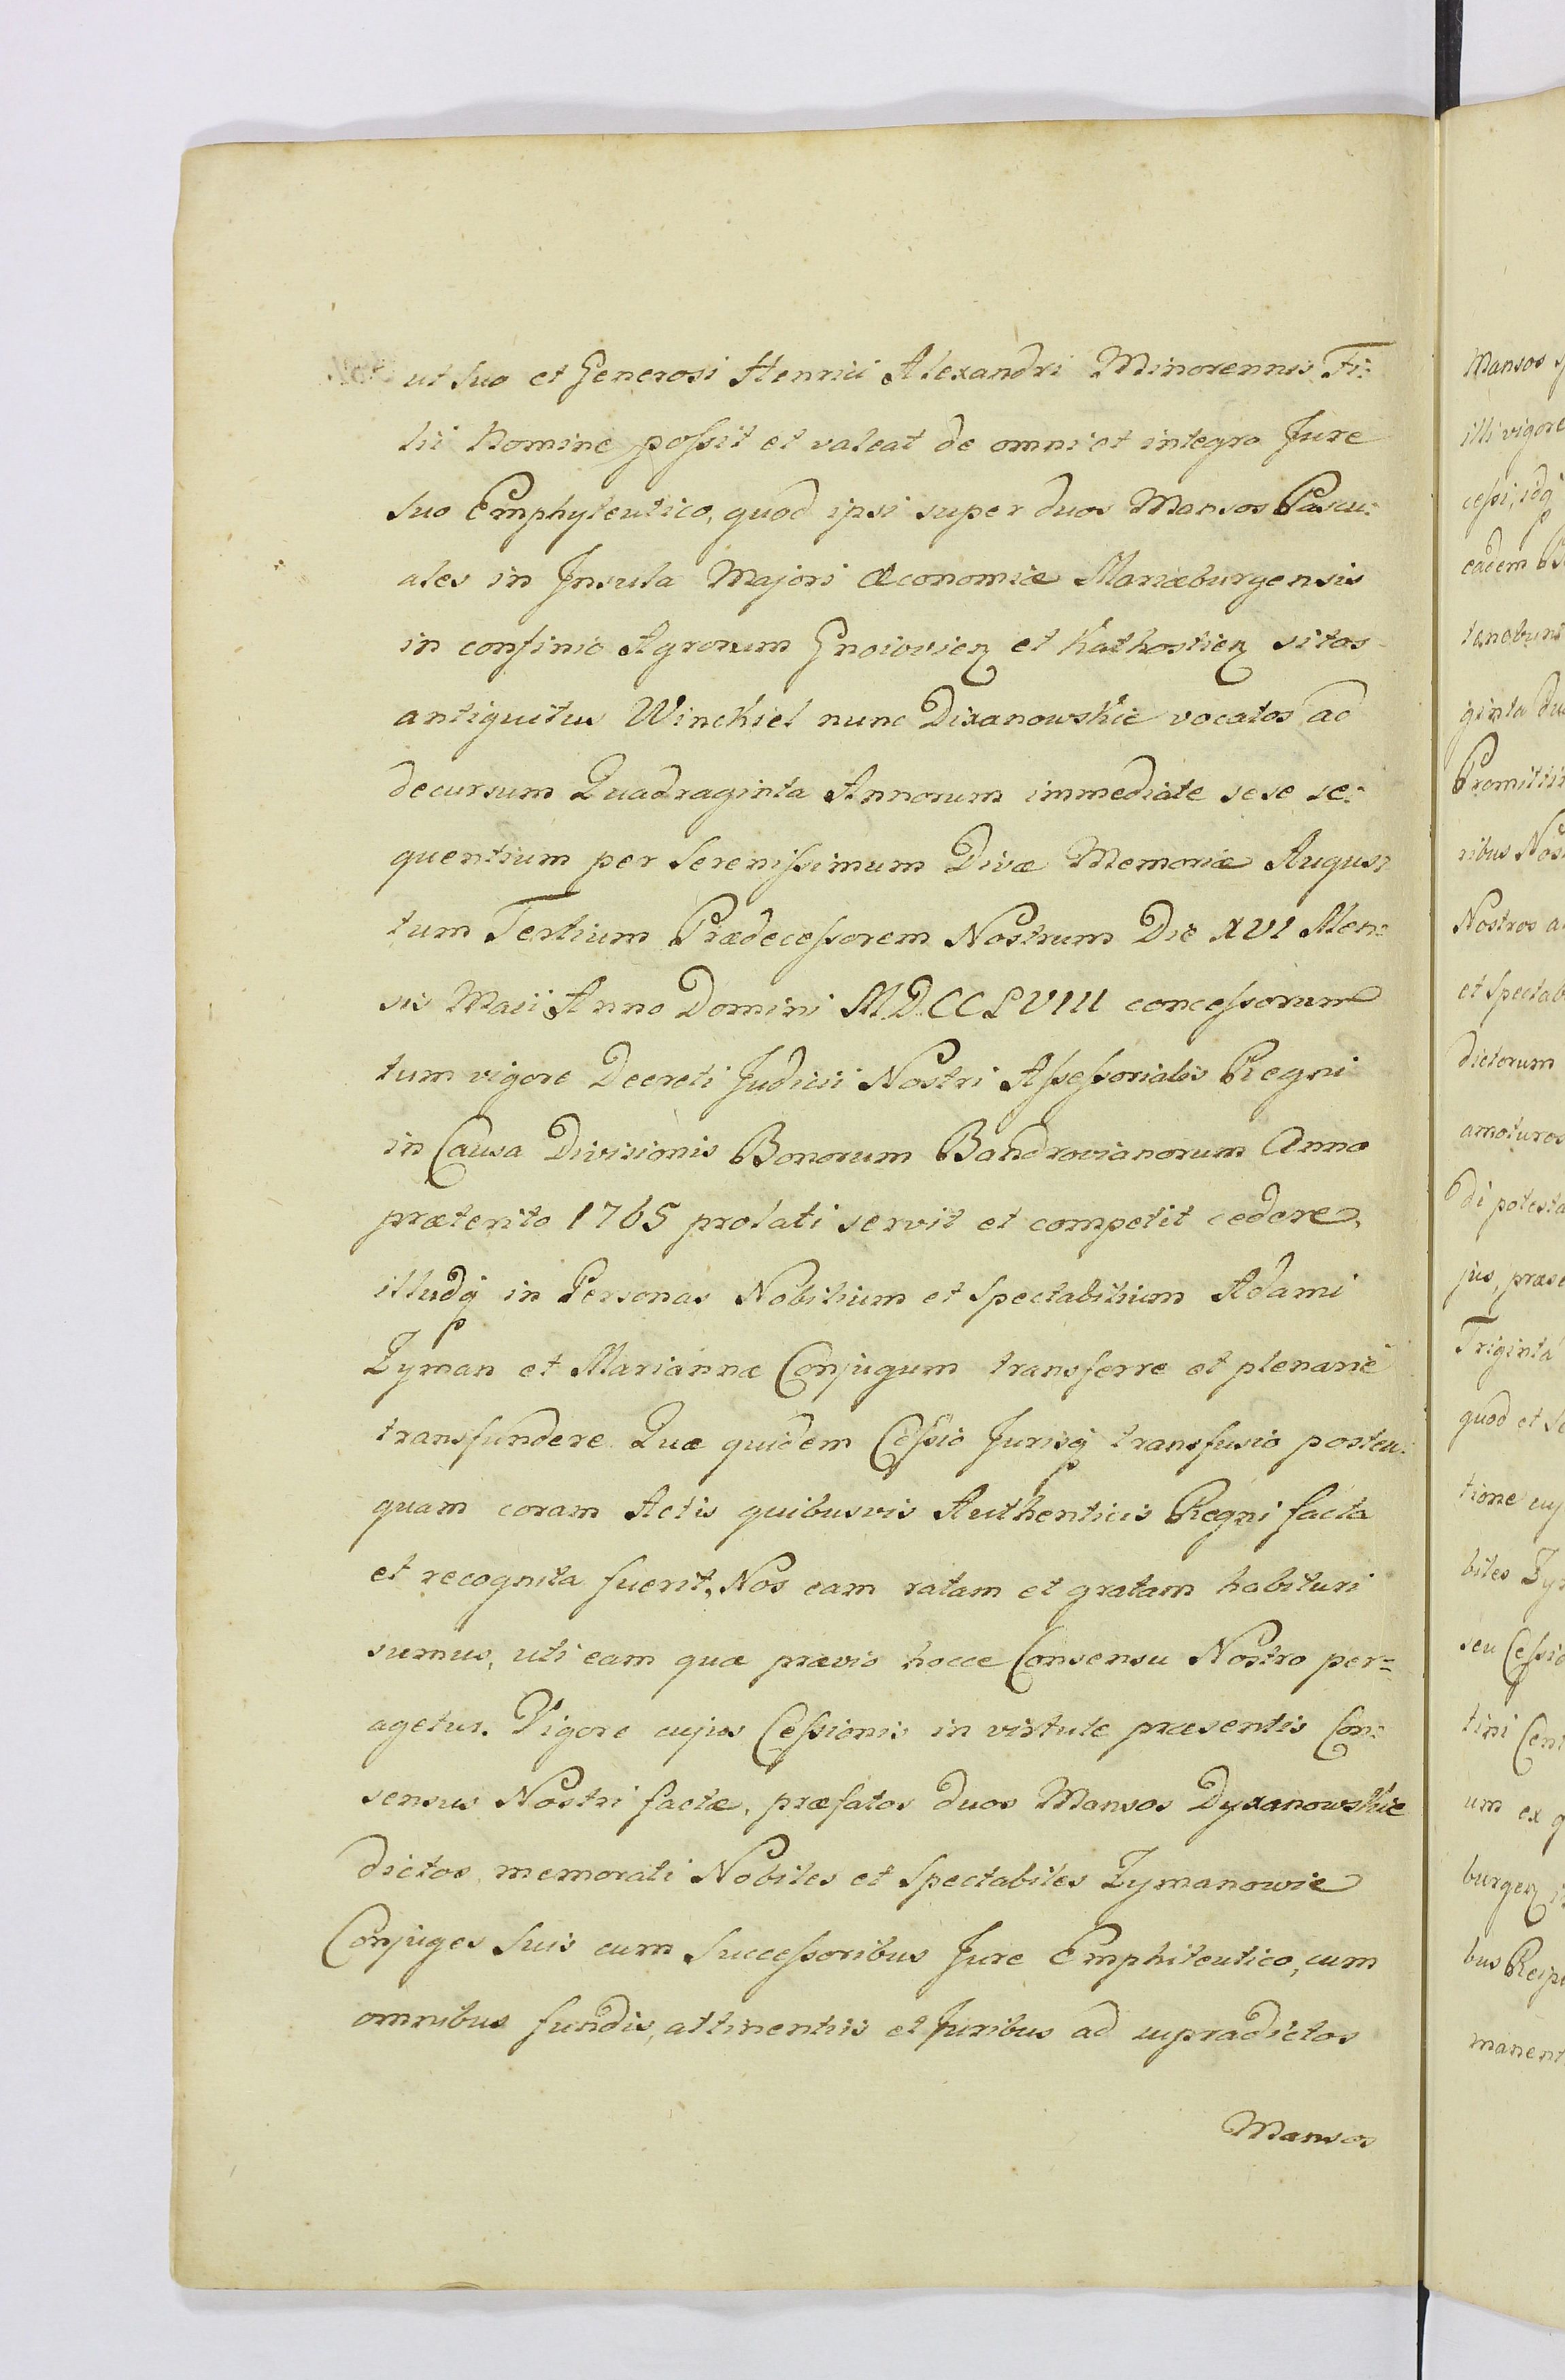 ut Suo et Generosi Henrici Alexandri Minorennis Fi:
lii Nomine possit et valeat de omni et integro Jure
Suo Emphyteutico, quod ipsi super duos Mansos Pascu:
ales in Insula Majori Œconomiæ Mariæburgensis
in confinio Agrorum Gnoiovien et Kathostien sitos
antiquitus Winckiel nunc Dixanowskie vocatos, ad
decursum Quadraginta Annorum immediate sese se:
quentium per Serenissimum Divæ Memoriæ Augus:
tum Tertium Prædecessorem Nostrum Die XVI Men:
sis Maii Anno Domini MDCCLVIII concessorum
tum vigore Decreti Judicii Nostri Assessorialis Regni
in Causa Divisionis Bonorum Bandrovianorum Anno
præterito 1765 prolati servit et competit cedere,
illudq in Personas Nobilium et Spectabilium Adami
Zyman et Mariannæ Conjugum transferre et plenarie
transfundere. Quæ quidem Cessio Jurisq transfusio postea:
quam coram Actis quibusvis Authenticis Regni facta
et recognita fuerit, Nos eam ratam et gratam habituri
sumus, uti eam quæ prævio hocce Consensu Nostro per=
agetur. Vigore cujus Cessionis in virtute præsentis Con:
sensus Nostri factæ, præfatos duos Mansos Dyxanowskie
dictos, memorati Nobiles et Spectabiles Zymanowie
Conjuges Suis cum Successoribus Jure Emphiteutico, cum
omnibus fundis, attinentiis et Juribus ad supradictos
Mansos
Mansos
illi vigore
cessi, idq
eadem
tenebunt
ginta
Promitti
ribus Nos
Nostros
et Spectab
dictorum
amoturos
di potesta
jus, præse
Triginta
quod et
tione cuj
biles Zy
seu Cessio
tini Cen
um ex
burgen
bus Reip
manent